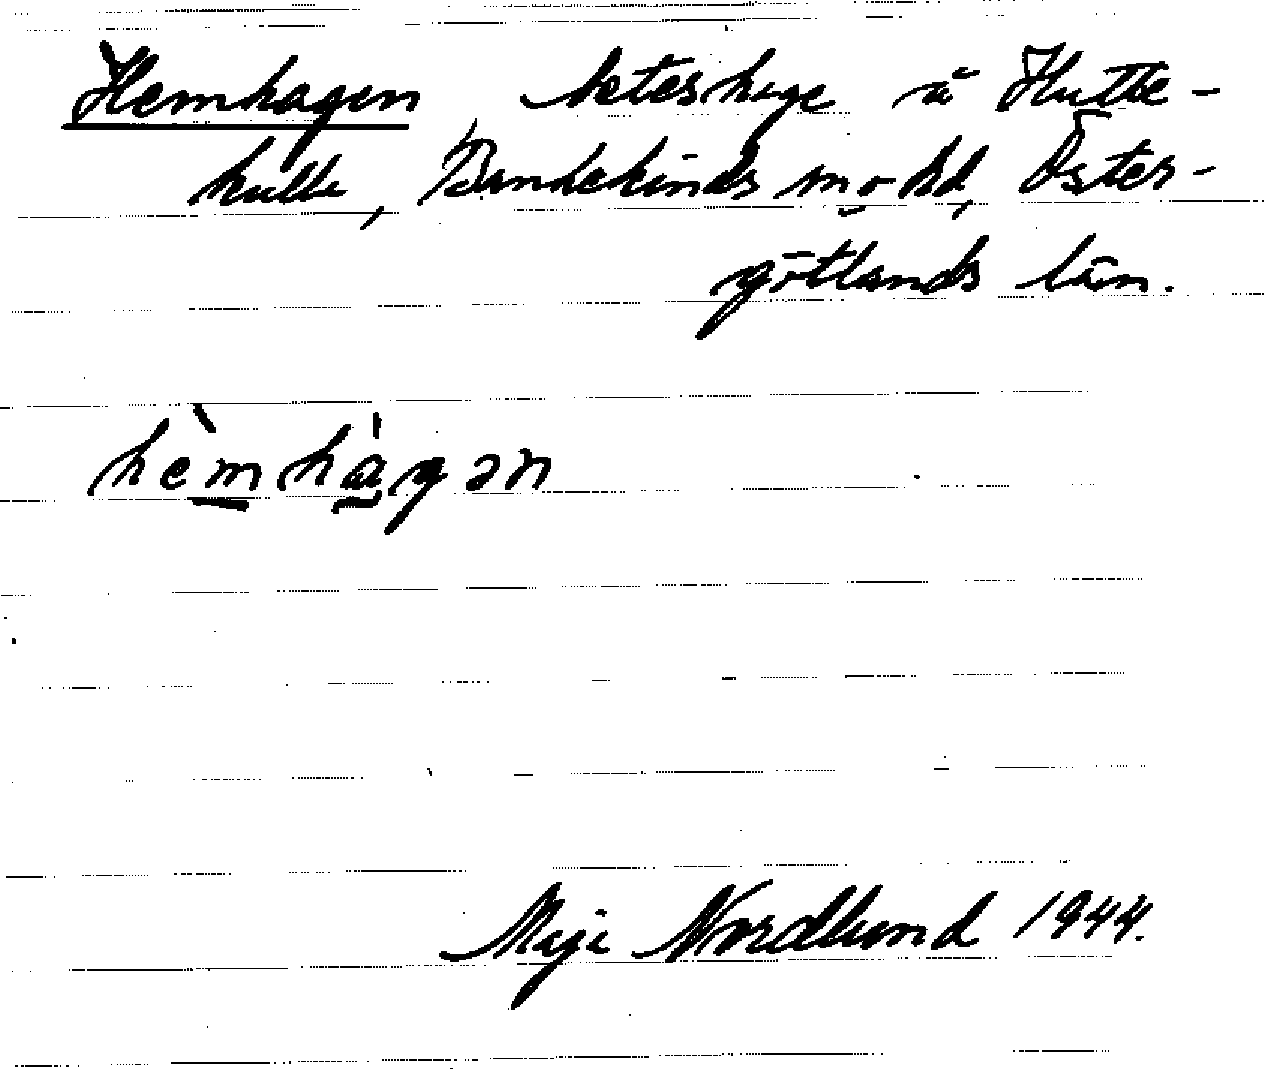 Hemhagen beteshage å Hutte-
kulla, Bankekinds sn o hd, Öster-
götlands län.
hèmhàgən
Nordlund 1944.